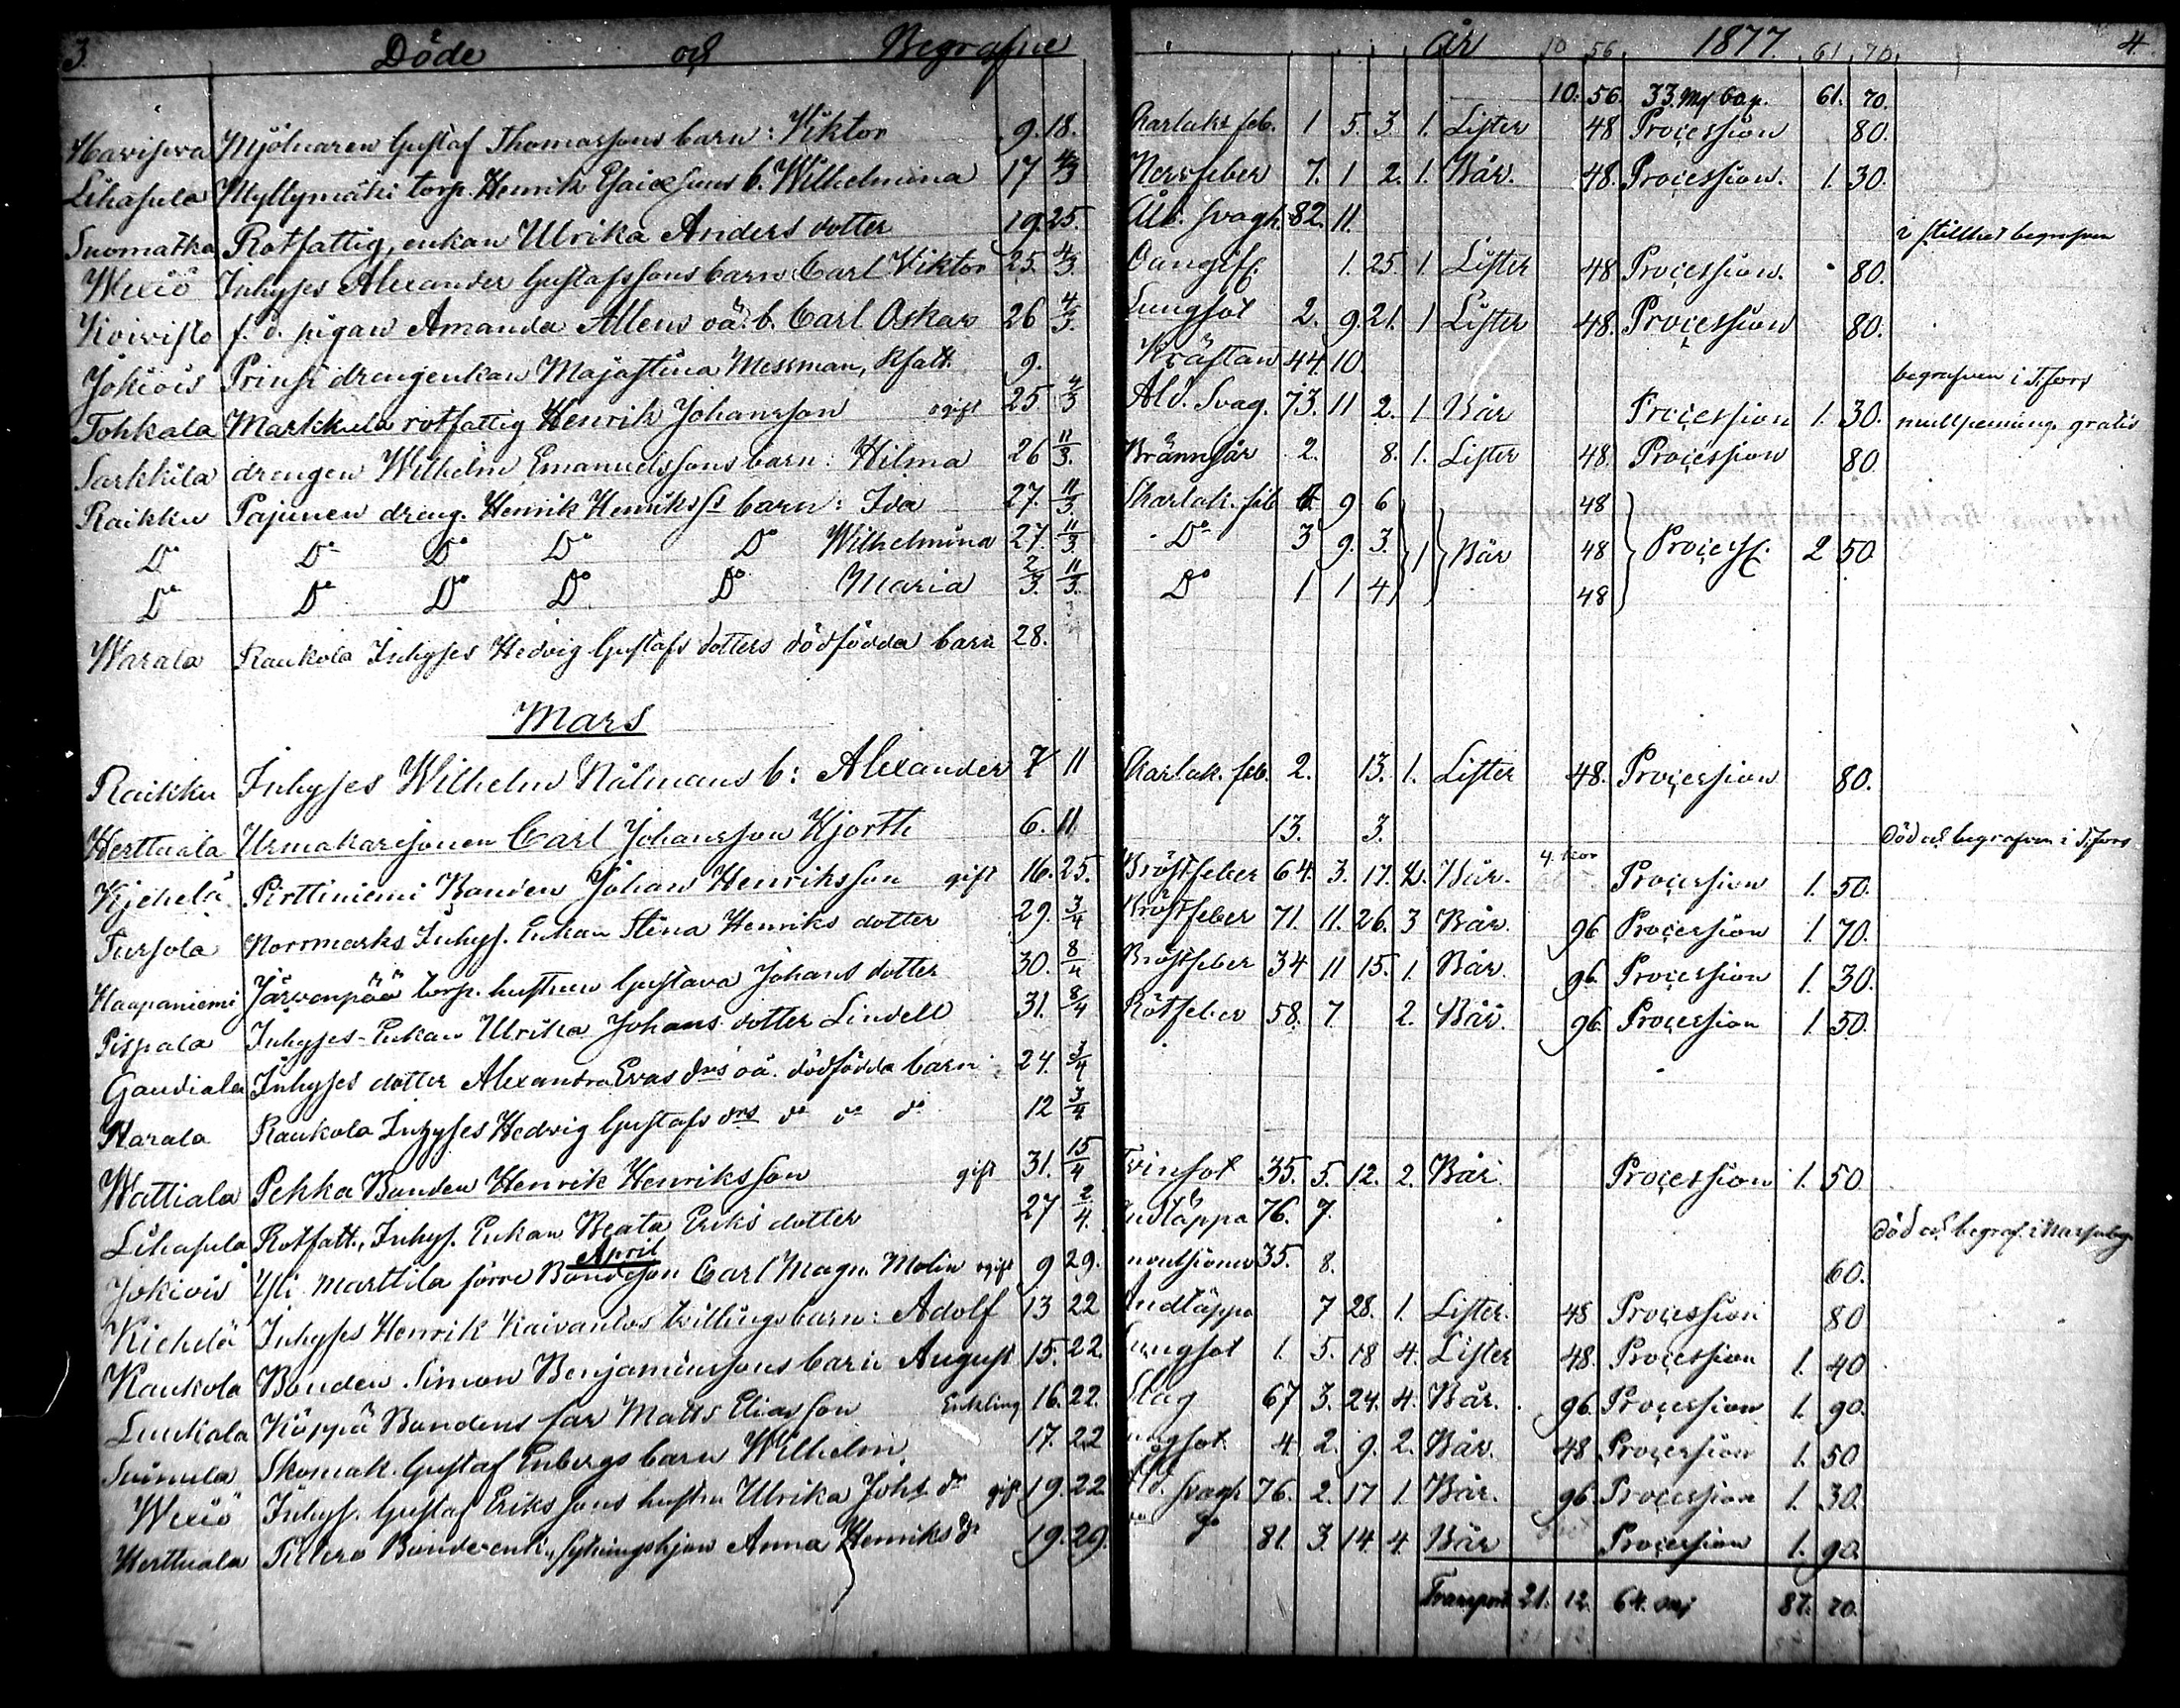 3. Döde och Begrafne år 10 56 1877. 61 70. 4.
10. 56. 33. 61. 70.
Mjölnaren Gustaf Thomassons barn: Viktor 9. 18. Skarlaks feb. 1 5. 3. 1. Lister 48 Procession 80.
Lihasula Myllymäki torp. Henrik b. Wilhelmina 17 4/3 Nervfeber 7. 1 2. 1. Bår. 48. Procession. 1. 30.
Suomatka Rotfattig, enkan Ulrika Anders dotter 19. 25. Åld. svagh. 82. 11. i stillhet begrafven
Wexiö Inhyses Alexander Gustafssons barn Carl Viktor 25. 4/3 Oangif. 1. 25. 1. Lister 48 Procession. 80.
Koivisto f. d. pigan Amanda Allens oä. b. Carl Oskar 26 4/3. Lungsot 2. 9. 21. 1 Lister 48. Procession 80.
Jokiois drengenkan Majastina Messman, Rfatt. 9. Kräftan 44. 10. begrafven i T.fors
Tohkala Markkula rotfattig Henrik Johansson ogift 25. 4/3 Åld. Svag. 73. 11 2. 1. Bår Procession 1. 30. mullpenning. gratis
Sarkkila drengen Wilhelm Emanuelssons barn: Hilma 26 11/3. Brännsår 2. 8. 1. Lister 48. Procession 80
Raikku Pajunen dreng. Henrik Henrikss barn: Ida 27. 11/3. Skarlak. feb 9 6 48
Do Do Do Do Do Wilhelmina 27. 11/3. Do 3 9. 3. 1 Bår 48 Process. 2 50
Do Do Do Do Do Maria 2/3. 11/3. Do 1 1 4 48
Warala Raukola Inhyses Hedvig Gustafs dotters dödfödda barn 28.
Mars
Raikku Inhyses Wilhelm Nålmans b: Alexander 7 11 Skarlak. feb. 2. 13. 1. Lister 48. Procession 80.
Herttuala Urmakaresonen Carl Johansson Hjorth 6. 11. 13. 3. Död och begrafven i T.fors
Pirttiniemi Bonden Johan Henriksson gift 16. 25. Bröstfeber 64. 3. 17. 2. Bår. Procession 1. 50.
Tursola Norrmarks Inhys. Enkan Stina Henriks dotter 29. 3/4 Bröstfeber 71. 11. 26. 3 Bår. 96 Procession 1. 70.
Haapaniemi Järvenpää torp. hustrun Gustava Johans dotter 30. 8/4 Bröstfeber 34 11 15. 1. Bår. 96. Procession 1. 30.
Pispala Inhyses-Enkan Ulrika Johans dotter Lindell 31. 8/4 Rötfeber 58. 7. 2. Bår. 96. Procession 1. 50.
Gaudiala Inhyses dotter Alexandra Evas drs oä. dödfödda barn 24. 3/4
Warala Raukola Inhyses Hedvig Gustafs drs do do do 12 3/4
Wattiala Pekka Bonden Henrik Henriksson gift 31. 15/4 Tvinsot 35. 5. 12. 2. Bår. Procession 1. 50
Lihasula Rotfatt., Inhys. Enkan Beata Eriks dotter 27 2/4. Andtäppa 76. 7. Död och begraf. i
April
Jokiois Yli Marttila förre Bondeson Carl Magn. Molin ogift 9 29. 35. 8. 60.
Kiehilä Inhyses Henrik Kaivantos tvillingsbarn: Adolf 13 22 Andtäppa 7 28. 1. Lister. 48 Procession 80
Raukola Bonden Simon Benjaminssons barn August 15. 22. Lungsot 1. 5. 18 4. Lister 48. Procession 1. 40
Luukala Käppä Bondens far Matts Eliasson Enkling 16. 22. Slag 67 3. 24. 4. Bår. 96. Procession 1. 90.
Suinula Skomak. Gustaf Enbergs barn Wilhelm. 17. 22 Lungsot 4 2. 9. 2. Bår. 48 Procession 1. 50
Wexiö Inhys. Gustaf Erikssons hustru Ulrika Johs dr gift 19. 22 Åld. svagh 76. 2. 17 1. Bår. 96. Procession 1. 30.
Herttuala Pillero Bondeenk., sytningshjon Anna Henriks dr 19. 29. do do 81. 3. 14. 4. Bår Procession 1. 90.
Transport 21. 12. 64. 87. 20.